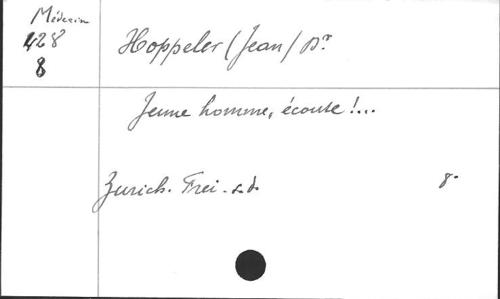 Médecin
428
8
Hoppeler (Jean) Dr
Jeune homme, écoute !...
Zurich. Frei. s.d. 8°